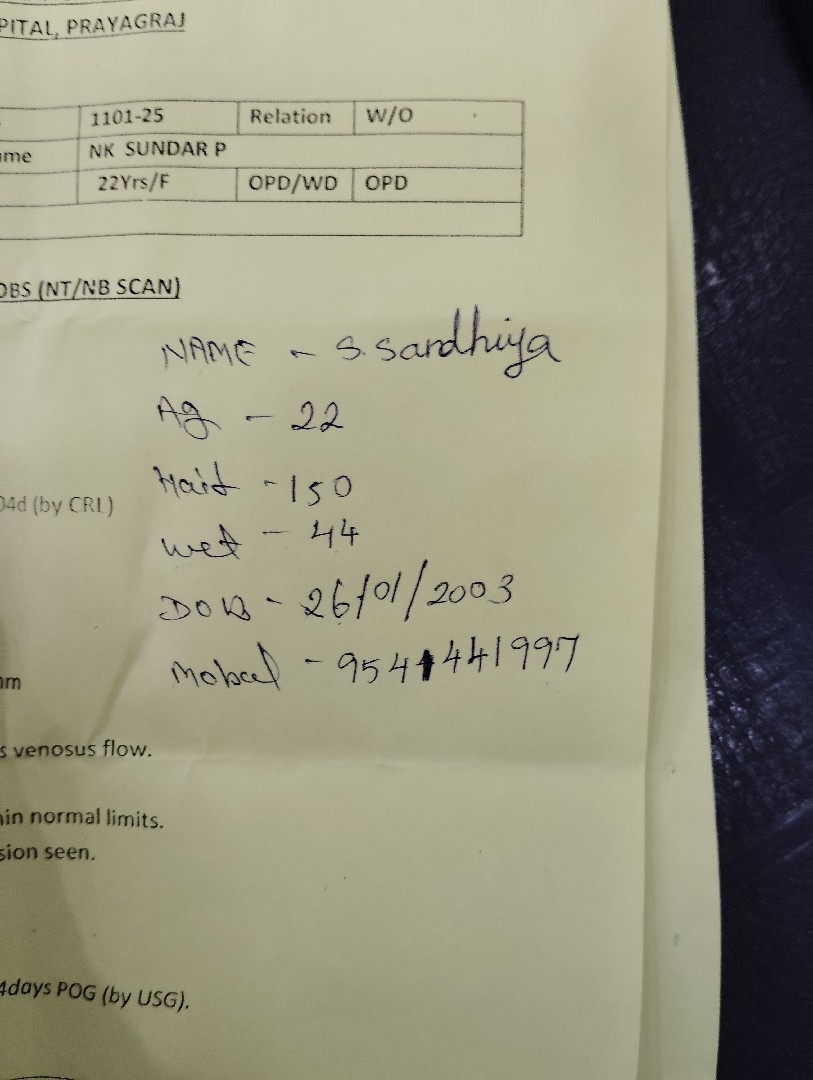 PITAL, PRAYAGRAJ
1101-25 Relation W/O
me NK SUNDAR P
22Yrs/F OPD/WD OPD
OBS (NT/NB SCAN)
NAME - S. Sandhiya
Ag - 22
Hait - 150
04d (by CRL)
wet - 44
DOB - 26/01/2003
Mobal - 9541441997
mm
s venosus flow.
in normal limits.
sion seen.
4days POG (by USG).